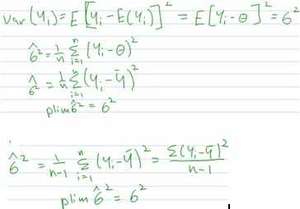 var(y_i) = E[y_i - E(y_i)]^2 = E[y_i - θ]^2 = 6^2
\hat{6}^2 = \frac{1}{n} \sum_{i=1}^{n} (y_i - θ)^2
\hat{6}^2 = \frac{1}{n} \sum_{i=1}^{n} (y_i - \bar{y})^2
plim \hat{6}^2 = 6^2
\hat{6}^2 = \frac{1}{n-1} \sum_{i=1}^{n} (y_i - \bar{y})^2 = \frac{Σ(y_i - \bar{y})^2}{n-1}
plim \hat{6}^2 = 6^2